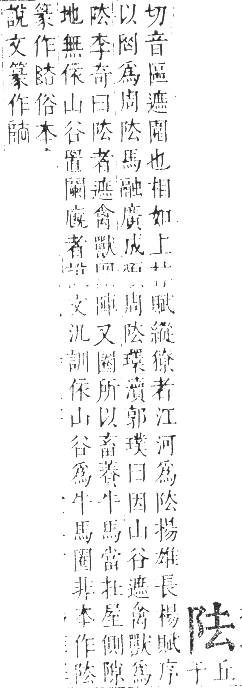 阹丘
平
切音區遮圍也相如上林賦縱獠者江河爲阹揚雄長楊賦序
以罔爲周阹馬融廣成頌周阹環瀆郭璞曰因山谷遮禽獸爲
阹李奇曰阹者遮禽獸圍陣又圈所以畜養牛馬當在屋側隙
地無依山谷置闌廄者說文汎訓依山谷爲牛馬圈非本作阹
篆作阹俗本
說文篆作